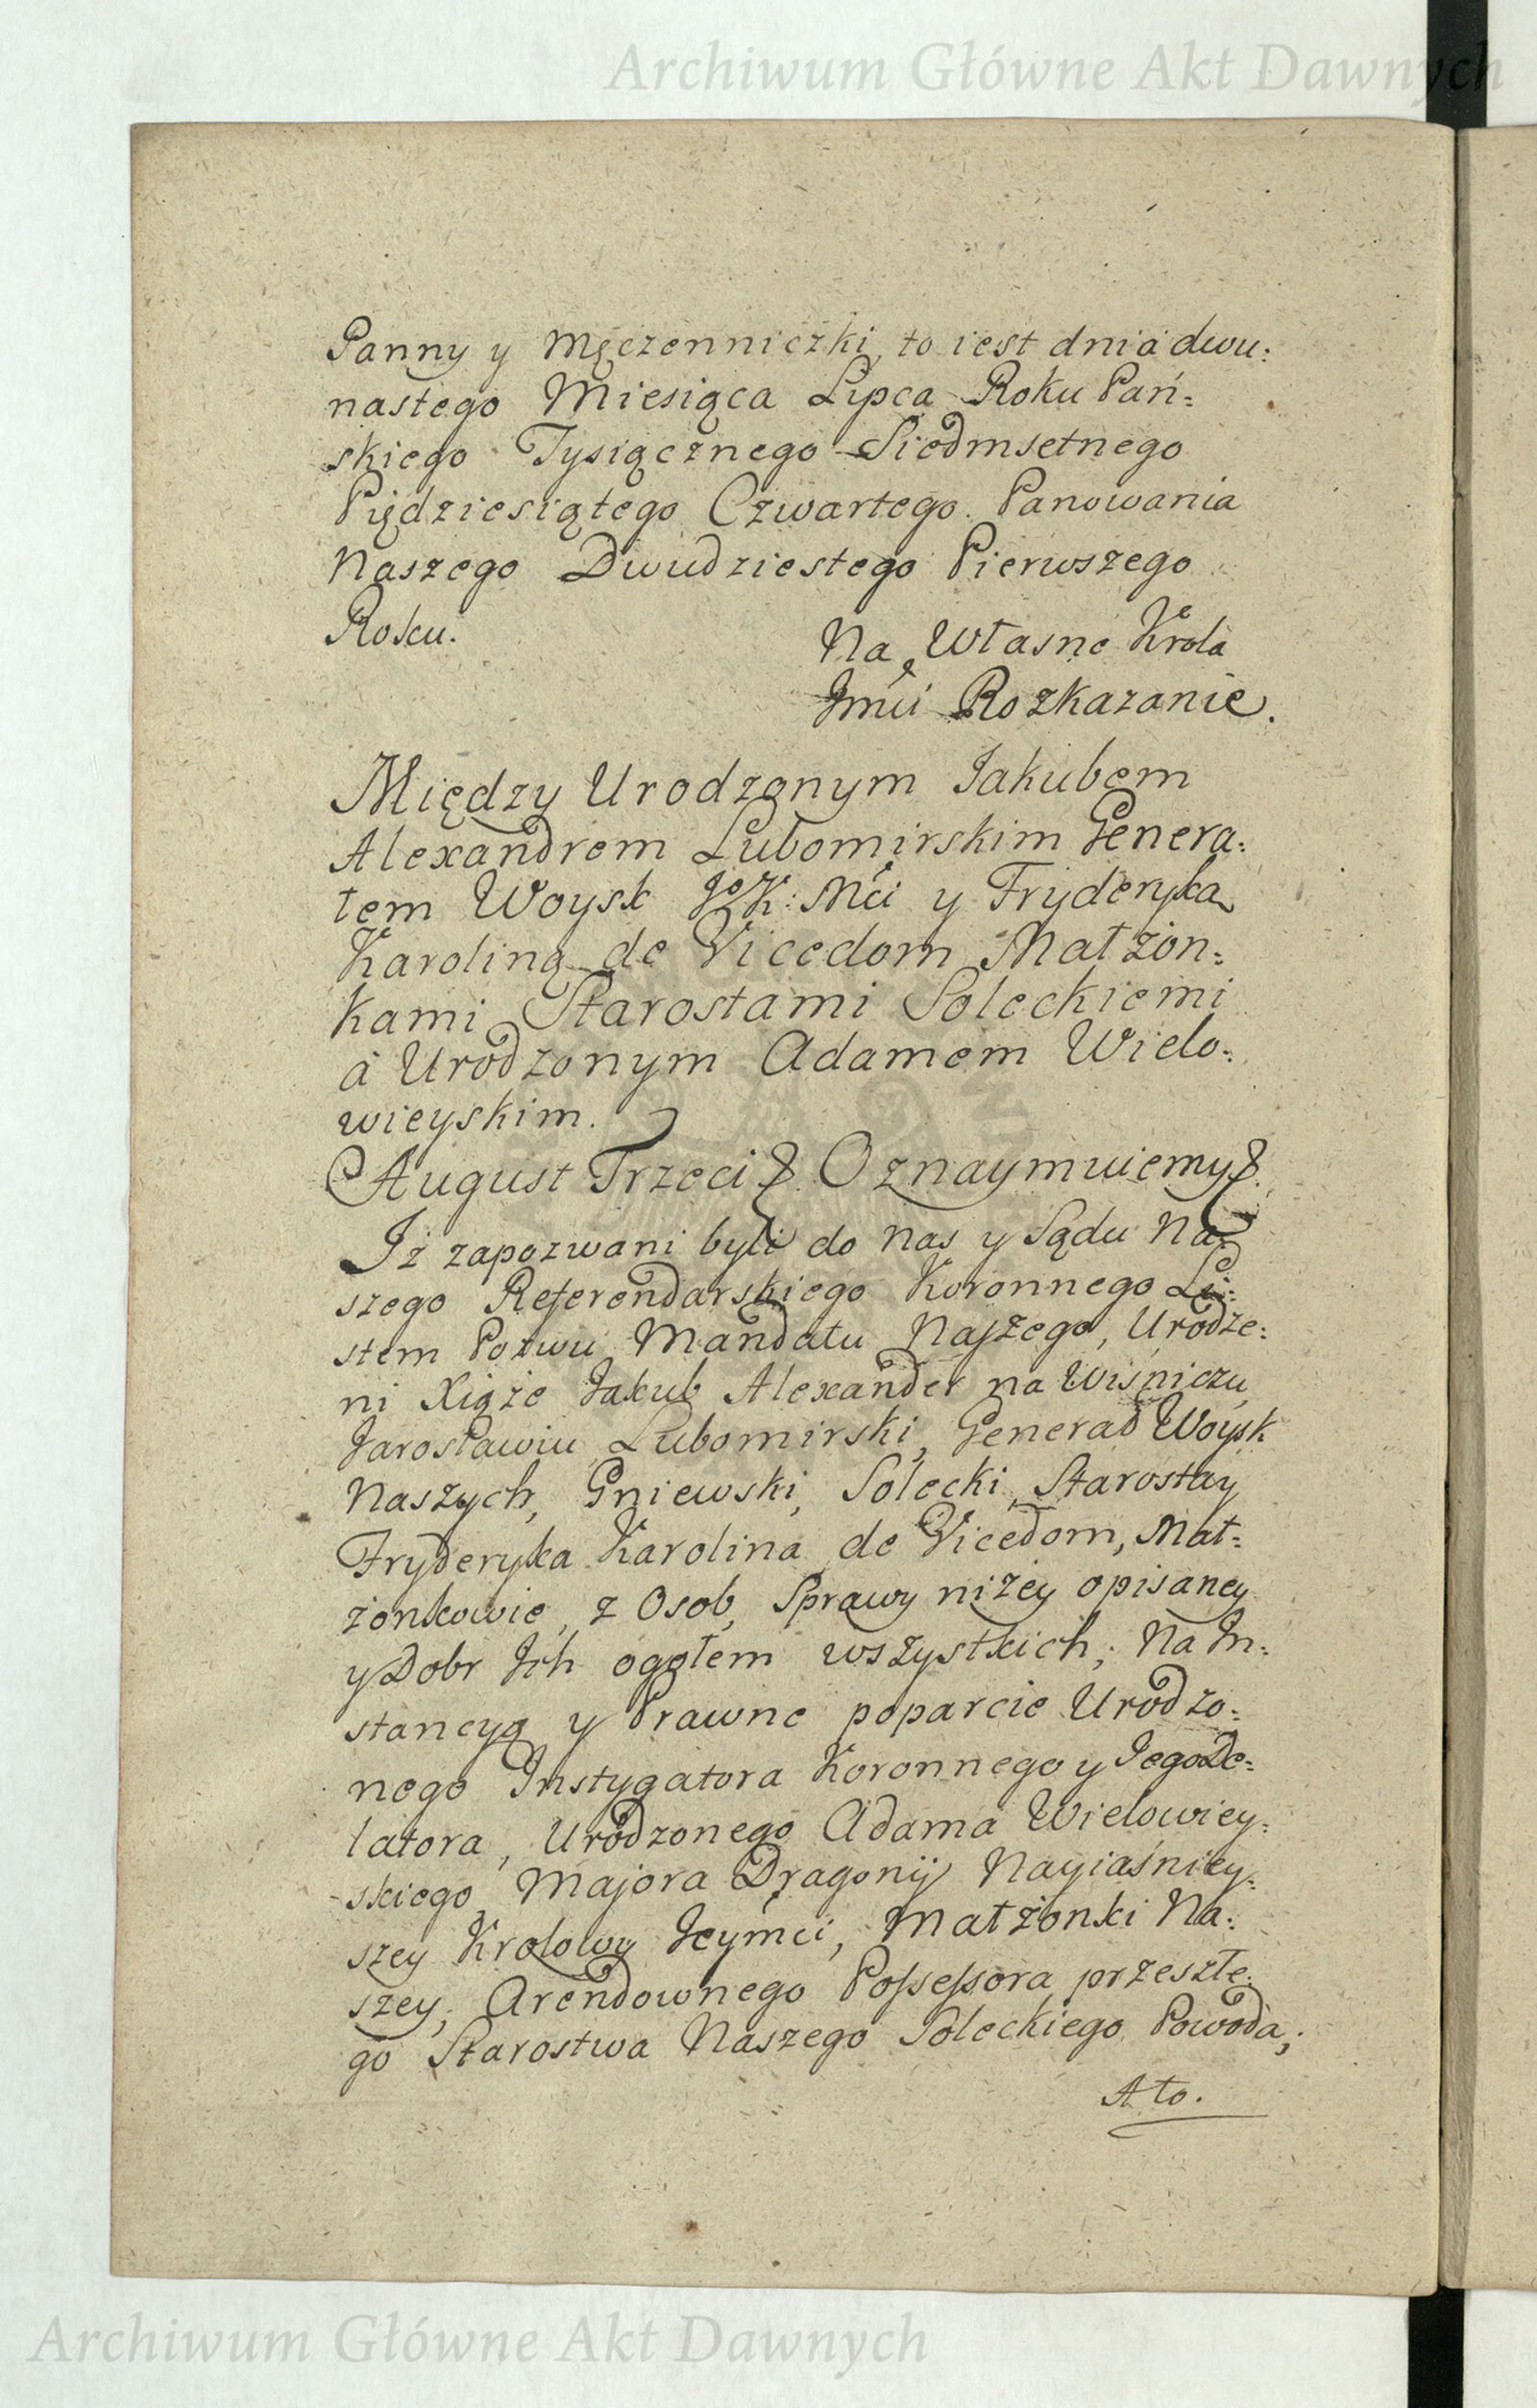 Archiwum Główne Akt Dawnych
Panny y Męczenniczki, to iest dnia dwu:
nastego Miesiąca Lipca Roku Pań:
skiego Tysiącznego Siedmsetnego
Piędziesiątego Czwartego. Panowania
Naszego Dwudziestego Pierwszego
Roku.
Na Własne Krola
Jmći Rozkazanie.
Między Urodzonym Jakubem
Alexandrem Lubomirskim Genera:
łem Woysk JoK: Mći y Fryderyką
Karoliną de Vicedom Małżon:
kami Starostami Soleckiemi
á Urodzonym Adamem Wielo:
wieyskim.
August Trzeci &. Oznaymuiemy &.
Iż zapozwani byli do Nas y Sądu Na
szego Referendarskiego Koronnego Li:
stem Pozwu Mandatu Naszego, Urodze:
ni Xiąże Jakub Alexander na Wiśniczu
Jarosławiu Lubomirski, Generał Woysk
Naszych, Gniewski, Solecki, Starosta y
Fryderyka Karolina de Vicedom, Mał:
żonkowie, z Osob, Sprawy niżey opisaney
y Dobr Ich ogołem wszystkich; Na In:
stancyą y Prawne poparcie Urodzo:
nego Instygatora Koronnego y Jego De:
latora, Urodzonego Adama Wielowiey:
skiego Majora Dragonij Nayiaśniey:
szey Krolowy Jeymći, Małżonki Na:
szey; Arendownego Possessora przeszłe:
go Starostwa Naszego Soleckiego Powoda;
A to.
Archiwum Główne Akt Dawnych